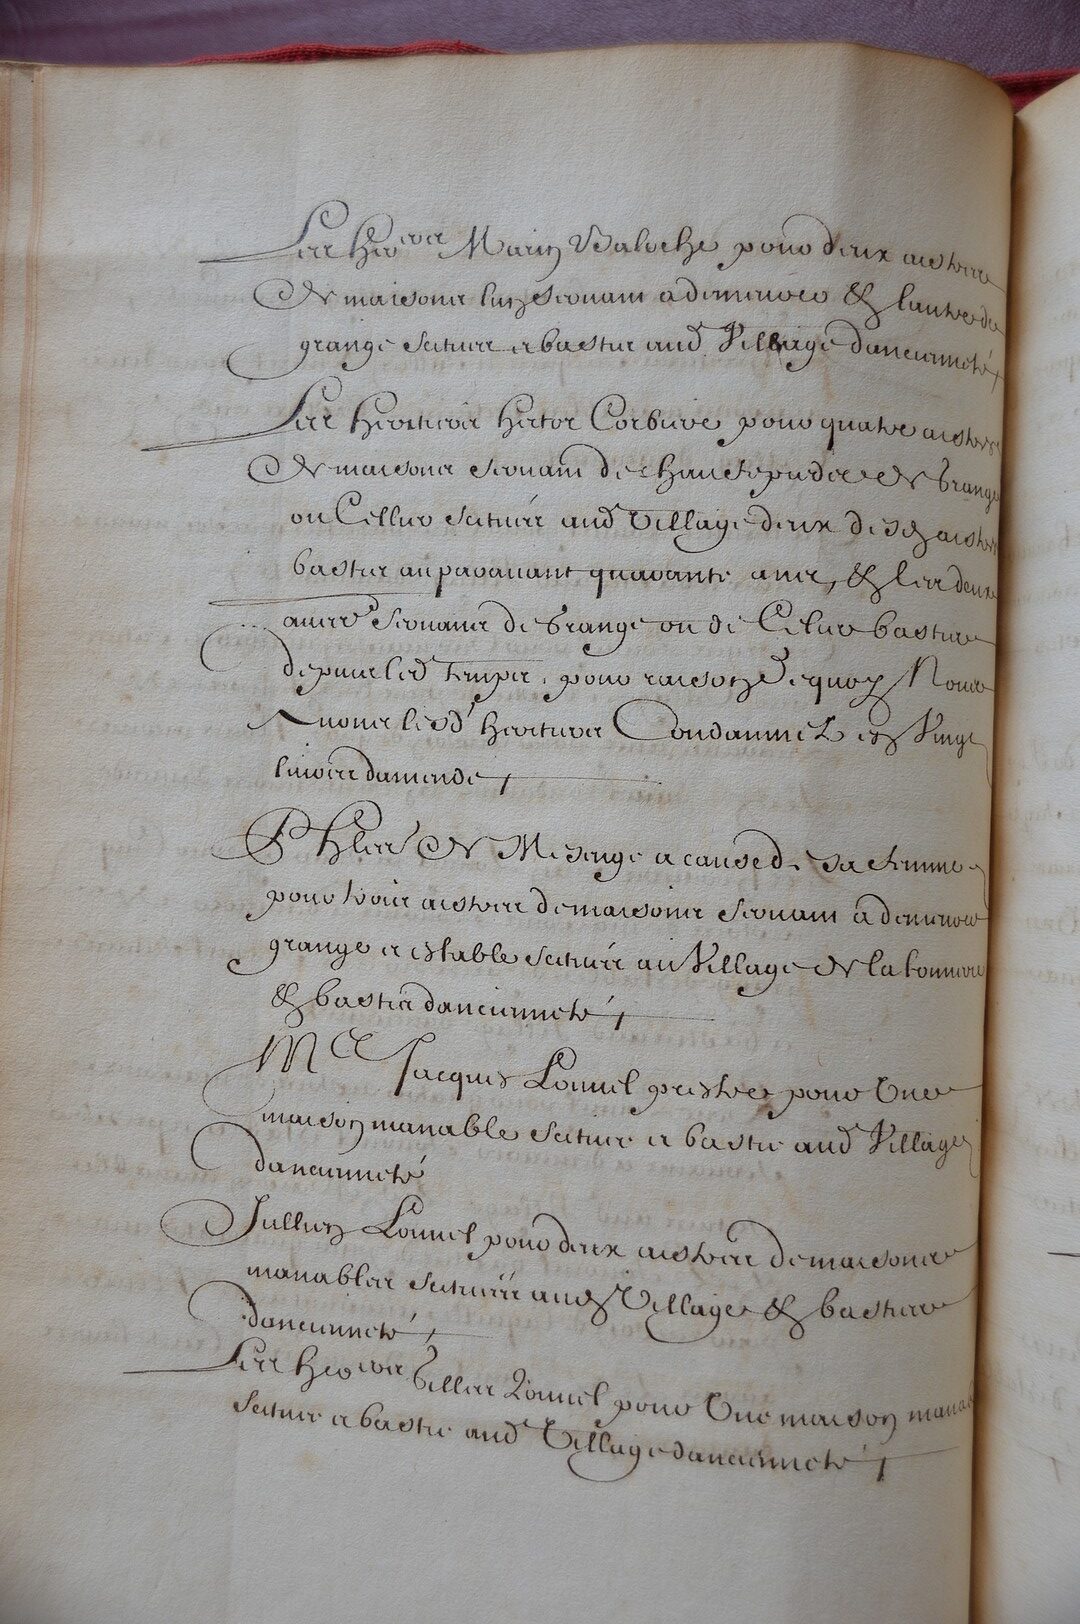 Les her^rs Marin Baloche pour deux aistres
de maisons lun servant a demeurer & lautre de
grange scitues et bastis aud Village danciennete
Les heritiers hector Corbiere pour quatre aistres
de maisons servant de chausepudre de grange
ou Cellier scitués aud Village deux desq aistres
bastis auparavant quarante ans, & les deux
autres servans de grange ou de Celier bastis
depuis led temps, pour raison de quoy Nous
Avons lesd heritiers Condamnez en Vingt
livres damende
Ph^les de Mesenge a cause de sa femme
pour trois aistres de maisons servans a demeurer
grange et estable scitués au Village de la
& bastis danciennete
M^re Jacques Lonnel prestre pour Une
maison manable scitué et bastie aud Village
danciennete
Jullien Lonnel pour deux aistres de maisons
manables scitués aud Village & bastis
danciennete
Les her^rs Gilles Lonnel pour Une maison mana
scitué et bastie aud Village danciennete